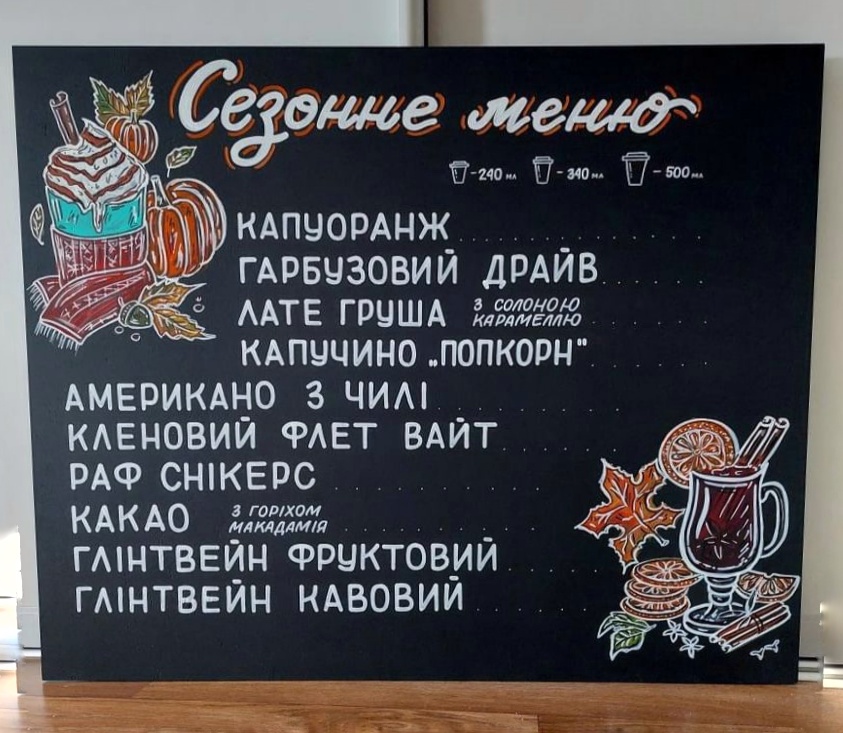 Сезонне меню
-240 мл - 340 мл - 500 мл
КАПУОРАНЖ
ГАРБУЗОВИЙ ДРАЙВ
ЛАТЕ ГРУША З СОЛОНОЮ КАРАМЕЛЛЮ
КАПУЧИНО „ПОПКОРН"
АМЕРИКАНО З ЧИЛІ
КЛЕНОВИЙ ФЛЕТ ВАЙТ
РАФ СНІКЕРС
КАКАО З ГОРІХОМ МАКАДАМІЯ
ГЛІНТВЕЙН ФРУКТОВИЙ
ГЛІНТВЕЙН КАВОВИЙ